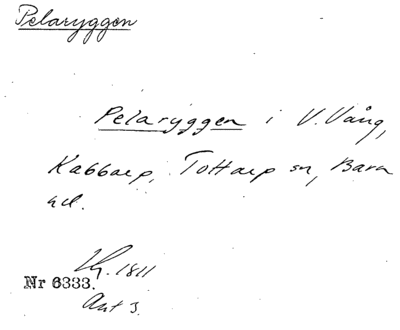 Pelaryggen
Pelaryggen i V. Vång,
Kabbarp, Tottarp sn, Bara
hd.
Lh. 1811
Nr 6333.
Akt 3.